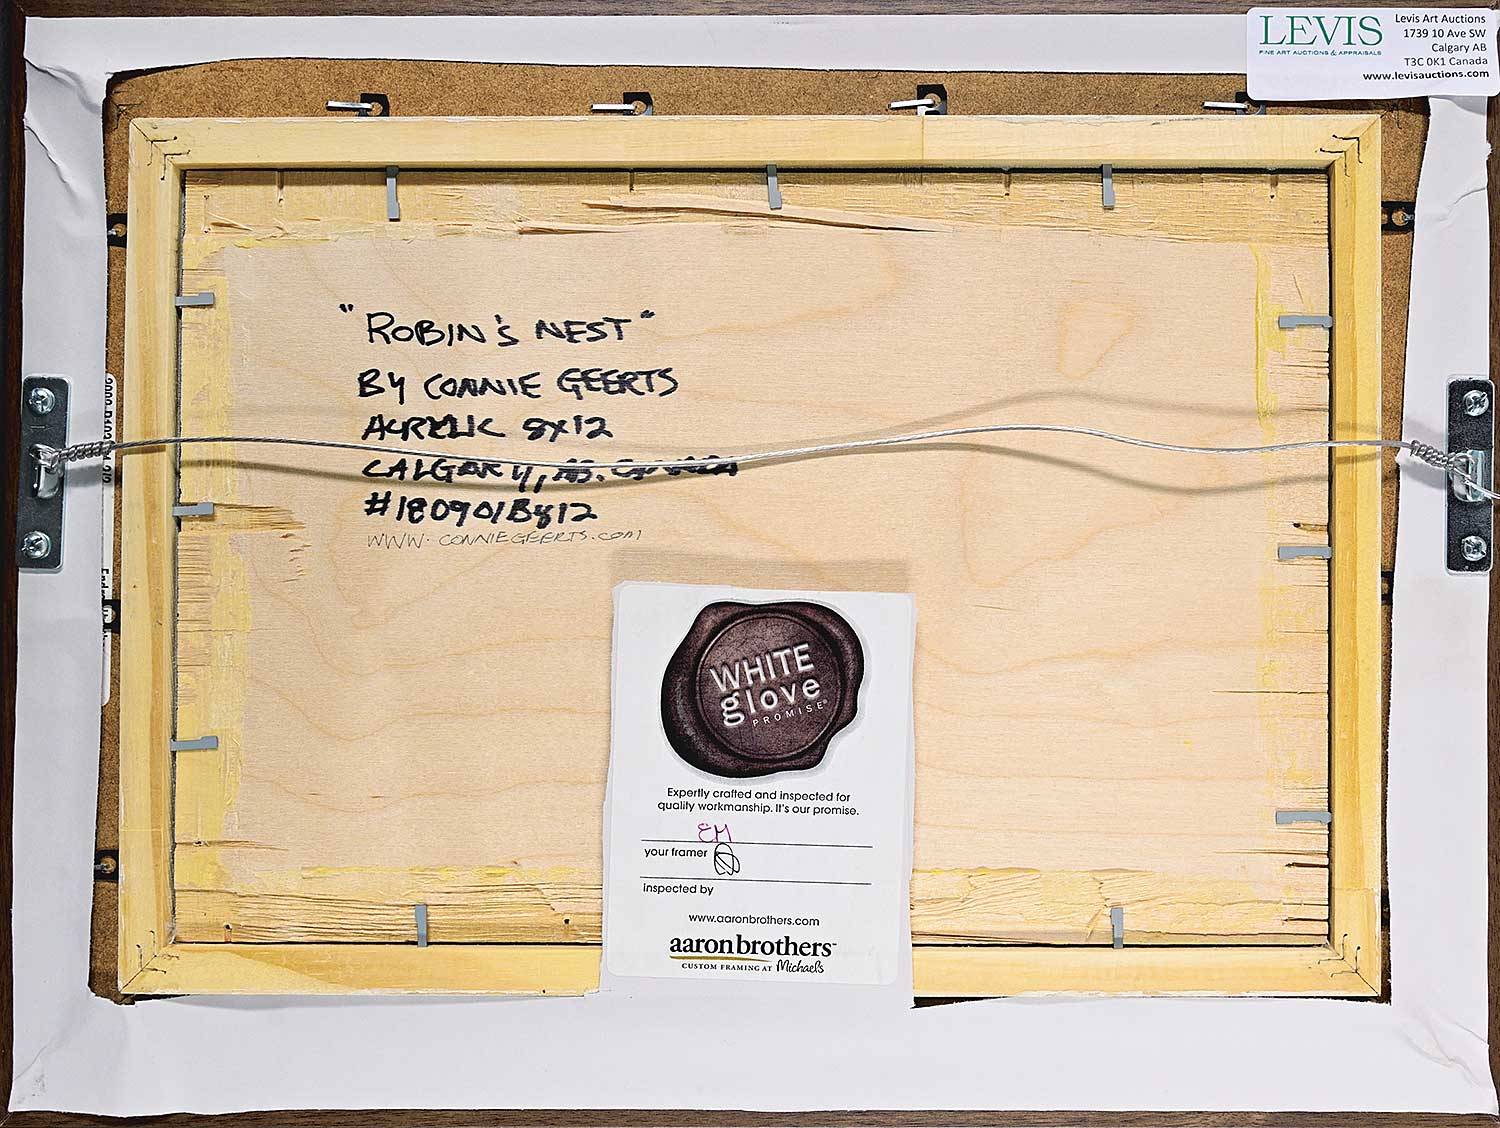 LEVIS
FINE ART AUCTIONS & APPRAISALS
Levis Art Auctions
1739 10 Ave SW
Calgary AB
T3C 0K1 Canada
www.levisauctions.com
"ROBIN'S NEST"
BY CONNIE GEERTS
ACRYLIC 8X12
CALGARY, AB. CANADA
#180901B812
WWW.CONNIEGEERTS.COM
WHITE
glove
PROMISE®
Expertly crafted and inspected for
quality workmanship. It's our promise.
EM
your framer
inspected by
www.aaronbrothers.com
aaronbrothers™
CUSTOM FRAMING AT Michaels